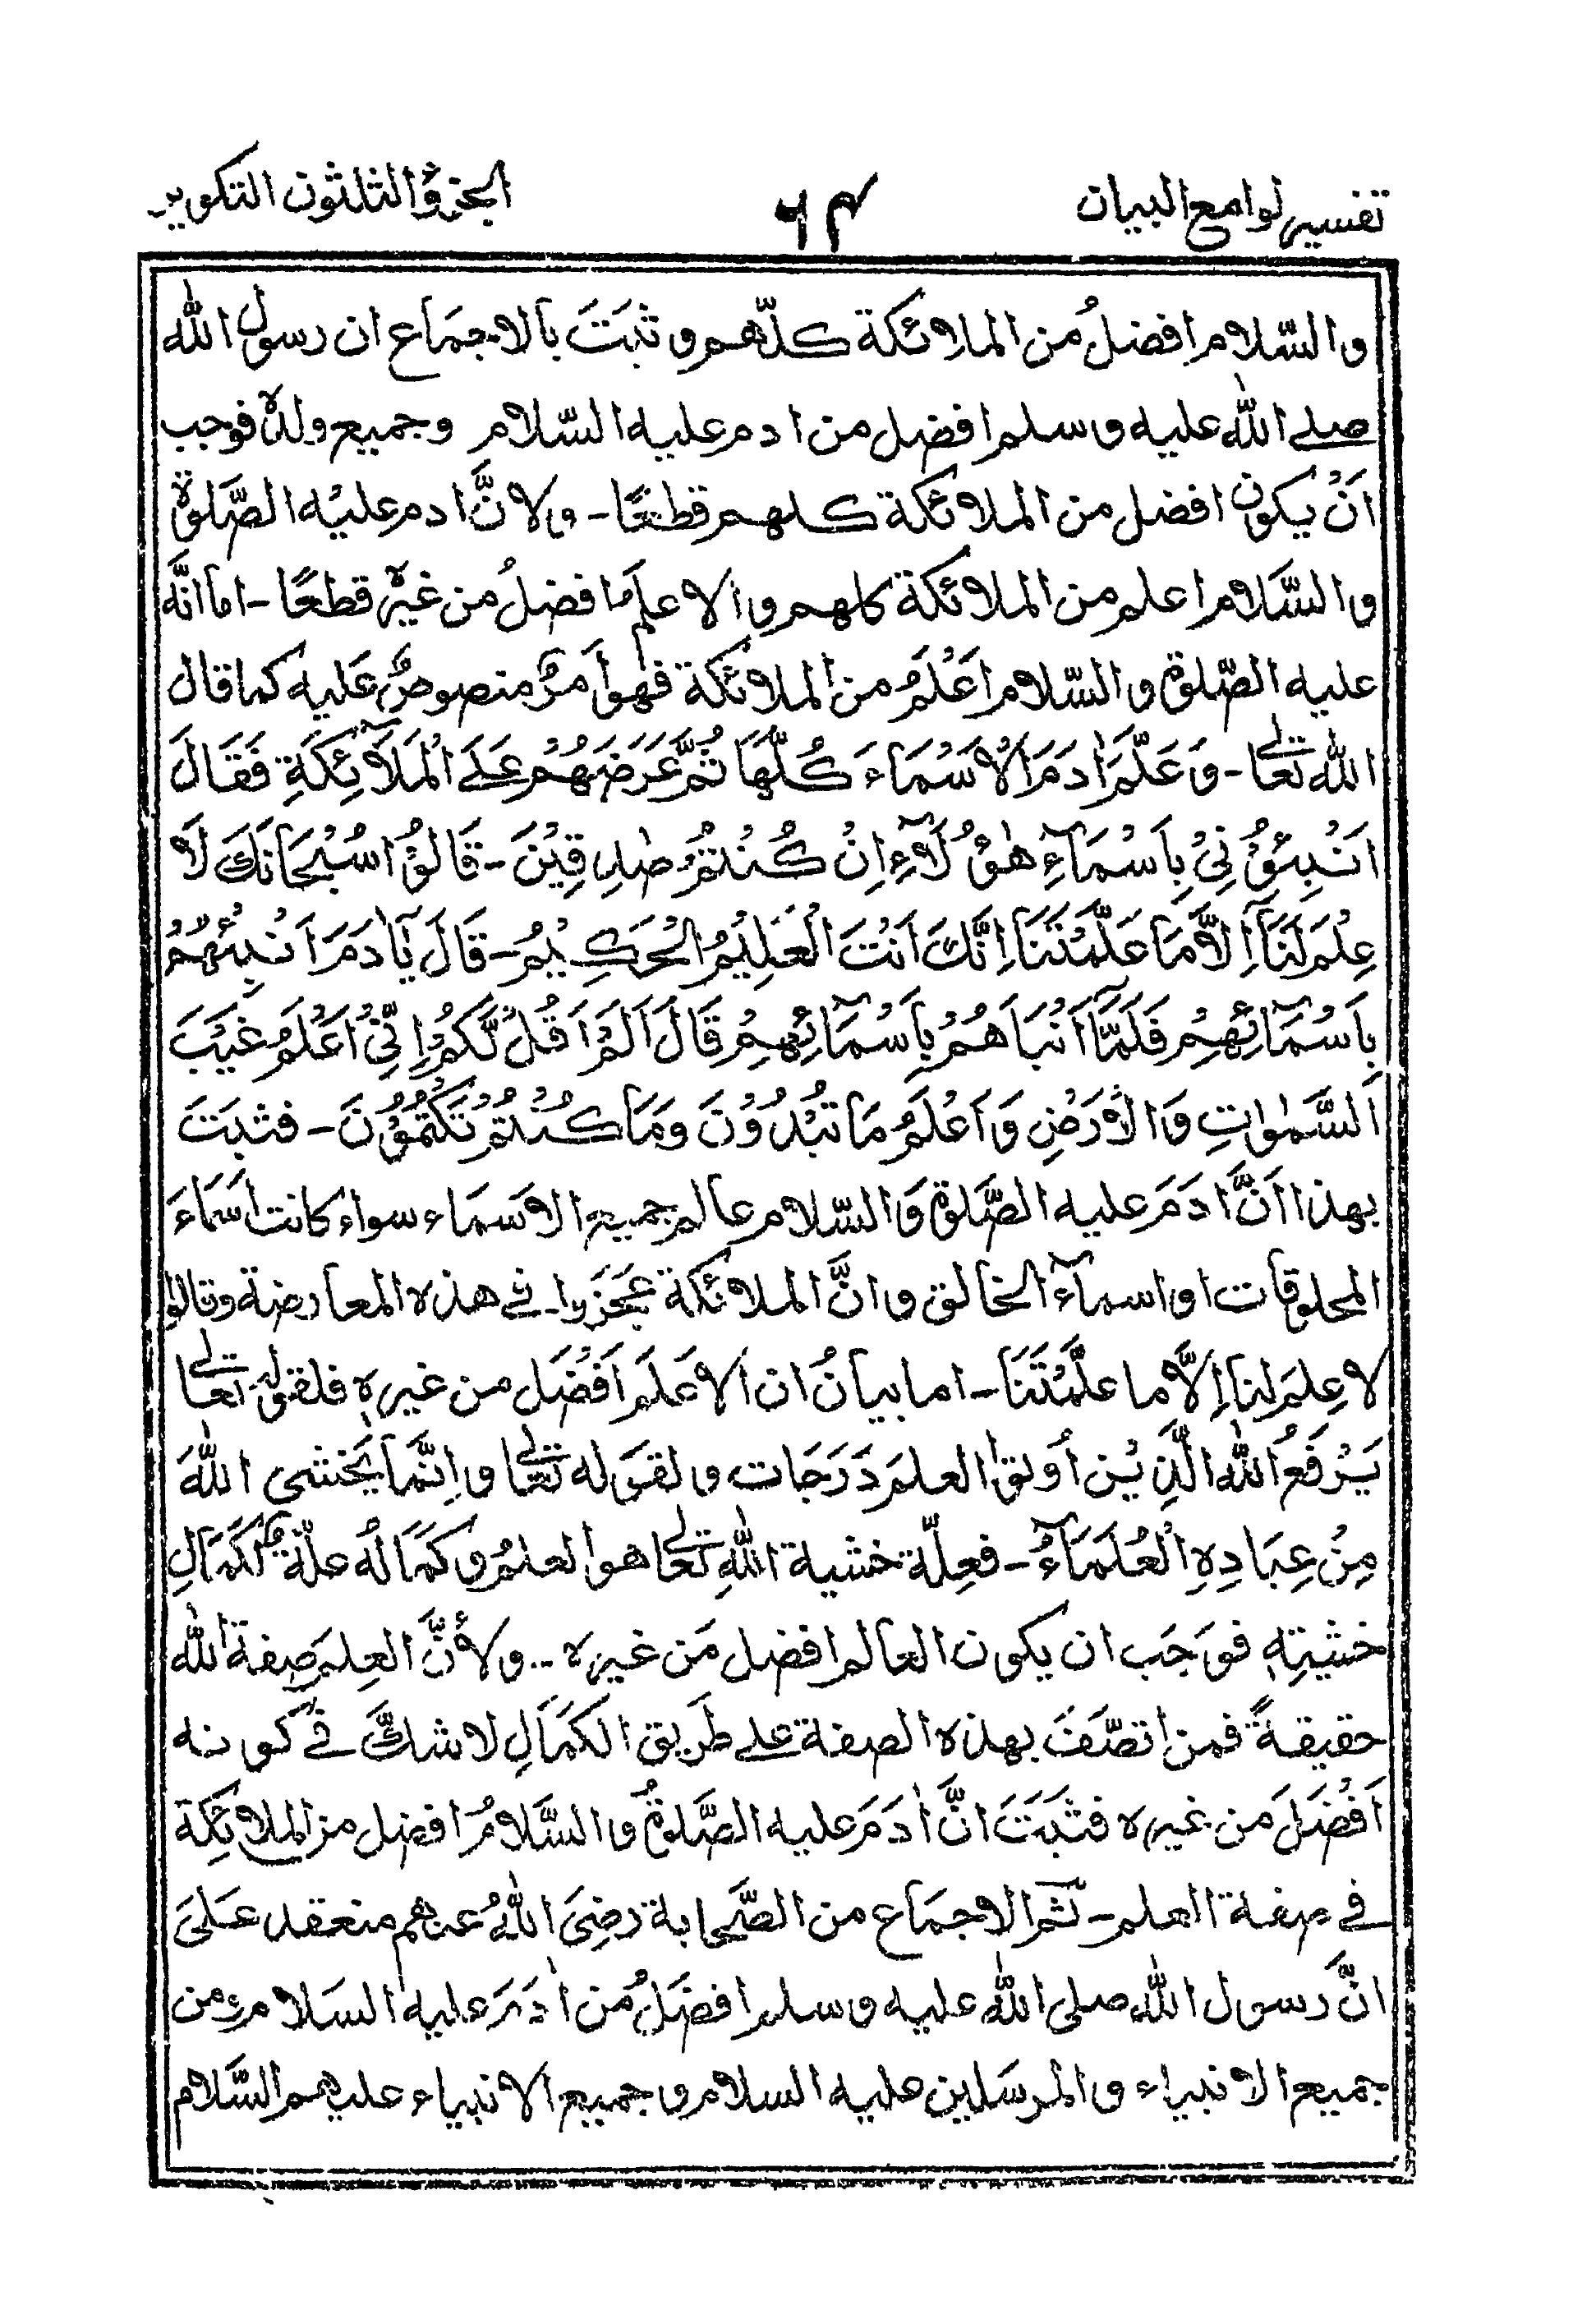 تفسير لوامع البيان ٦٤ الجزؤ الثلثون التكوير
والسّلام افضلُ من الملائكة كلّهم و ثبَتَ بالاجمَاع ان رسول الله
صلے اللّٰه عليه وسلم افضل من ادم عليه السّلام وجميع ولدہ فوجب
اَنْ يكون افضل من الملائكة كلهم قطعًا - ولانَّ ادم عليْه الصَّلوة
والسَّلام اعلم من الملائكة كلهم والاعلَم افضلُ من غيرہ قطعًا - اما انَّه
عليه الصّلوة والسّلام اَعْلَمُ من الملائكة فهو اَمرٌ منصوصٌ عَليه كما قال
اللّٰه تعالٰے - وَعَلَّمَ اٰدَمَ الْاَسْمَاءَ كُلَّهَا ثُمَّ عَرَضَهُمْ عَلَے الْمَلَآئِكَةِ فَقَالَ
اَنْبِئُوْنِيْ بِاَسْمَآءِ هٰؤُلَآءِ اِنْ كُنْتُمْ صٰدِقِيْنَ - قَالُوْا سُبْحَانَكَ لَا
عِلْمَ لَنَآ اِلَّا مَا عَلَّمْتَنَا اِنَّكَ اَنْتَ الْعَلِيْمُ الْحَكِيْمُ - قَالَ يٰٓا دَمَ اَنْبِئْهُمْ
بِاَسْمَآئِهِمْ فَلَمَّآ اَنْبَاَهُمْ بِاَسْمَآئِهِمْ قَالَ اَلَمْ اَقُلْ لَّكُمْ اِنِّيْ اَعْلَمُ غَيْبَ
السَّمٰوٰتِ وَالْاَرْضِ وَاَعْلَمُ مَا تُبْدُوْنَ وَمَا كُنْتُمْ تَكْتُمُوْنَ - فثبَتَ
بهذا اَنَّ ادَمَ عليه الصَّلوة وَالسّلام عالم جميع الاَسمَاء سواء كانت اسَمَاءَ
المخلوقات او اسمآء الخالق و انَّ الملائكة عجَزوا فے هذه المعارضة وقالوا
لا عِلمَ لنا اِلَّا ما علَّمْتَنَا - اما بيانُ ان الاَعلَم اَفْضَل من غيرہٖ فلقولہ تعالٰے
يَرْفَعُ اللّٰهُ الَّذِيْن اُوتوا العلمَ دَرَجَات ولقَوله تعالٰے و اِنَّمَا يَخشى اللّٰهَ
مِنْ عِبَادِهِ الْعُلَمَآءُ - فعِلّة خشية اللّٰهِ تعالٰے هو العلمُ و كَمَالُه علّة لكَمَالِ
خشيتِہٖ فوَجَب ان يكون العالم افضل مَن غيرہ - ولأنَّ العِلمَ صِفة اللّٰه
حقيقةً فمن اتصّفَ بهذه الصفة علے طَريق الكَمَالِ لا شكَّ فے كونه
اَفْضَلَ مَن غيره فثَبَتَ انَّ اٰدَمَ عليه الصَّلوةُ والسَّلامُ افضل من الملائكة
فے صفة العلم - ثم الاجمَاع من الصَّحابة رضِیَ اللّٰهُ عنهم منعقد عَلیَ
انَّ رسول اللّٰه صلى اللّٰه عليه وسلم افضَلُ من اٰدَمَ عليه السَلام و من
جميع الانبياء والمرسَلين عليه السلام و جميع الانبياء عليهم السَّلام